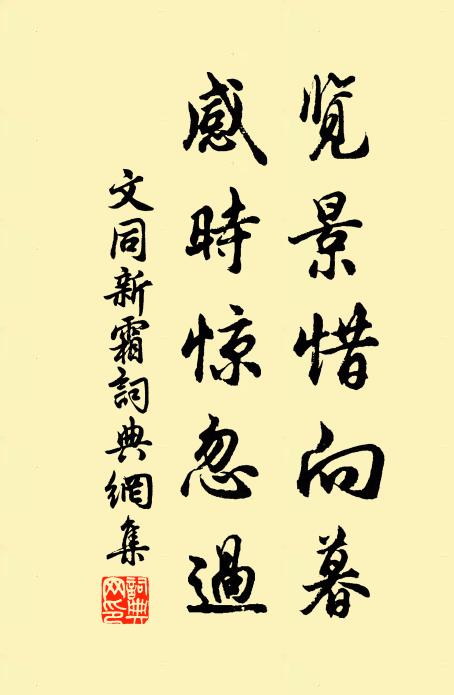 览景惜向暮
感時惊忽過
文同新霜詞典網集
詞典
网印